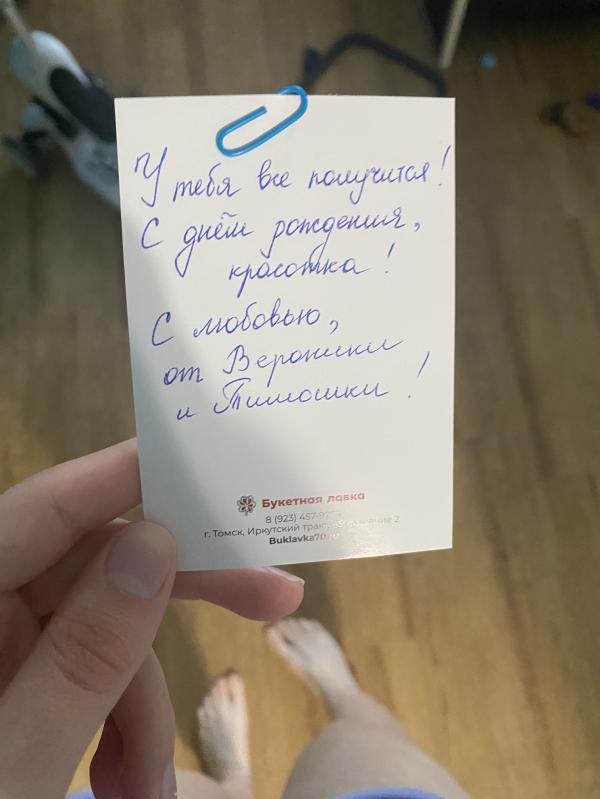 У тебя все получится!
С днём рождения,
красотка!
С любовью,
от Вероники
и Тимошки!
Букетная лавка
8 (923) 457-
г. Томск, Иркутский 2
Buklavka70